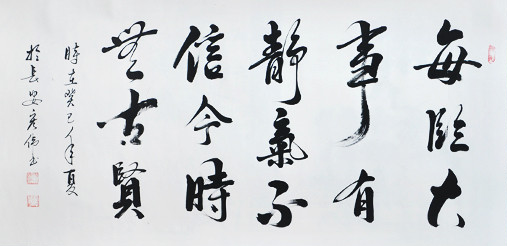 每臨大
事有
靜氣不
信今時
無古賢
時在癸巳年夏
於長安書